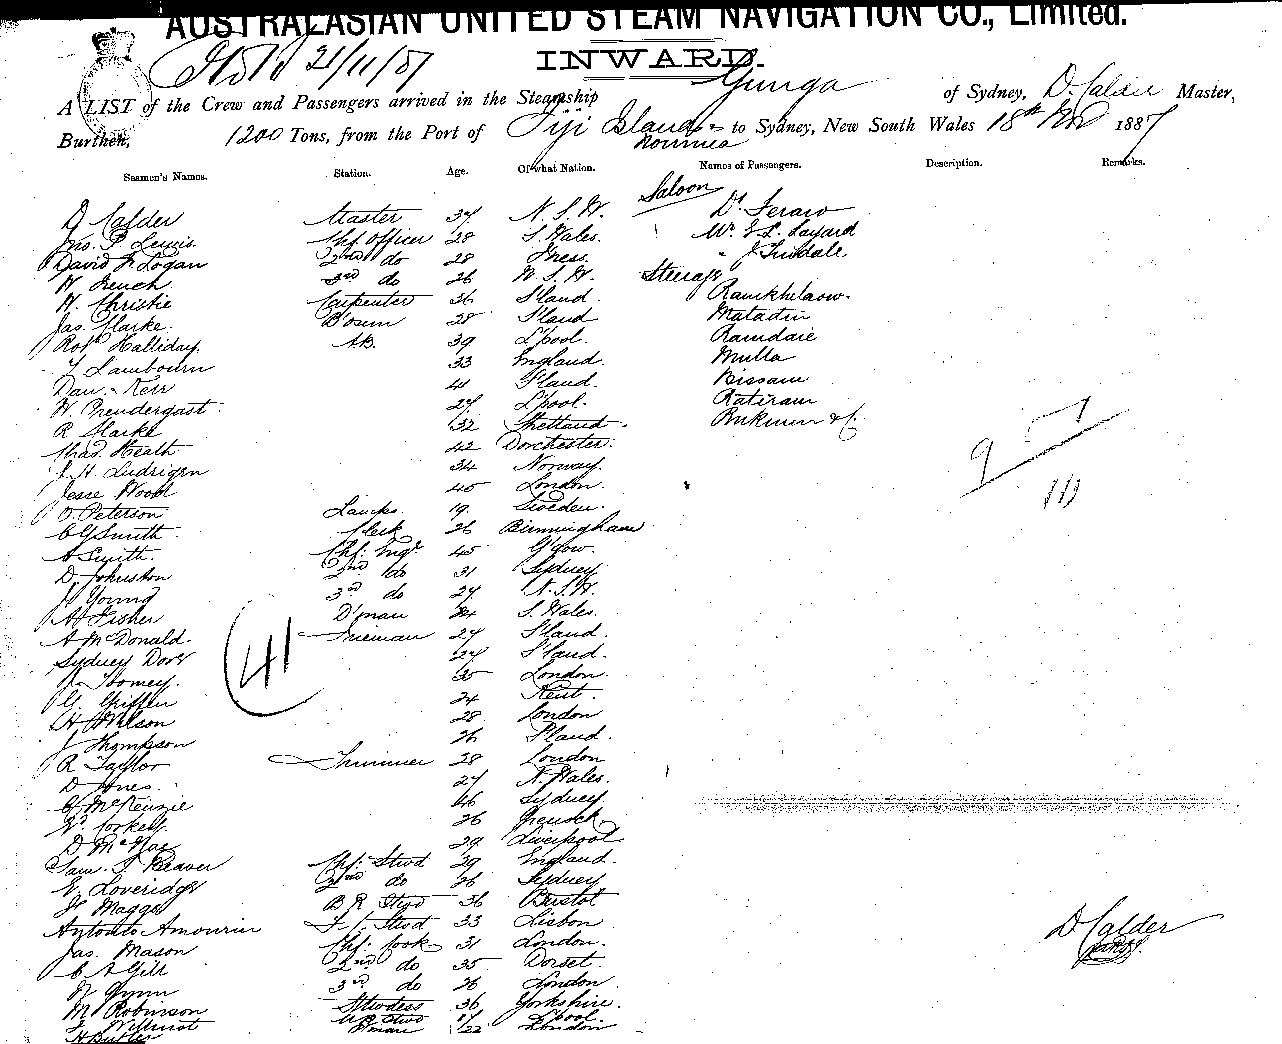 AUSTRALASIAN UNITED STEAM NAVIGATION CO., Limited.
21/11/87
INWARD.
A LIST of the Crew and Passengers arrived in the Steamship Gunga of Sydney, D. Calder Master,
Burthen, 1200 Tons, from the Port of Fiji Islands to Sydney, New South Wales 18th Nov 1887
Noumea
Seamen's Names. Station. Age. Of what Nation. Names of Passengers. Description. Remarks.
Saloon
D Calder Master 37 N. S. W. Dr
Jno. P. Lewis Chf. Officer 28 S. Wales. Mr E L. Layard
David F. Logan 2nd do 28 " J. Tindale
W French 3rd do 26 N. S. W. Steerage
H. Christie Carpenter 36 S'land Ramkhelaow.
Jas. Clarke B'osun 28 S'land Matadin
Robt Halliday. AB. 39 L'pool. Ramdaie
T Lambourn 33 England. Mulla
Dan. Kerr 41 Bissam
W. Prendergast 27 L'pool. Ratiram
R Clarke 32 Shetland.
Chas. Heath 42 Dorchester.
J. H. Ludrigen 34 Norway.
Jesse Wood 45 London.
O. Peterson Lamps 19 Sweden.
C G Smith Clerk 26 Birmingham
A Smith. Chf. Engr 45 G'gow.
D. Johnston 2nd do 31 Sydney
J Young 3rd do 27 N. S. W.
A Fisher D'man S. Wales.
A McDonald. Fireman 27 S'land.
Sydney 27 S'land.
35 London
G. Griffen 24 Kent.
H Wilson 28 London
J Thompson 26
R Taylor Trimmer 28 London
D Jones. 27 N. Wales.
McKenzie 46 Sydney
W. Corkery 26 Greenock
D McRae 29 Liverpool
Sam. T. Beaver Chf. Stwd 29 England.
E. Loveridge 2nd do 26 Sydney
B R Stwd 36 Bristol
Antonio Amourin F. C. Stwd 33 Lisbon
Jas. Mason Chf. Cook 31 London.
C A Gill 2nd do 35 Dorset.
W Gynn 3rd do 26 London
M Robinson Stwdess 36 Yorkshire.
Willmot Stwd 17 L'pool.
H Butler 22 London
41
9
111
D Calder
Master